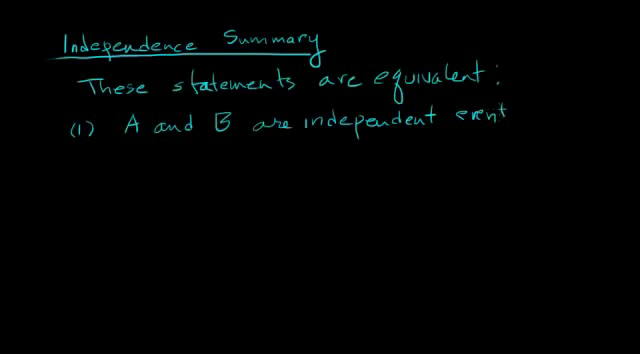 Independence Summary
These statements are equivalent:
(1) A and B are independent event